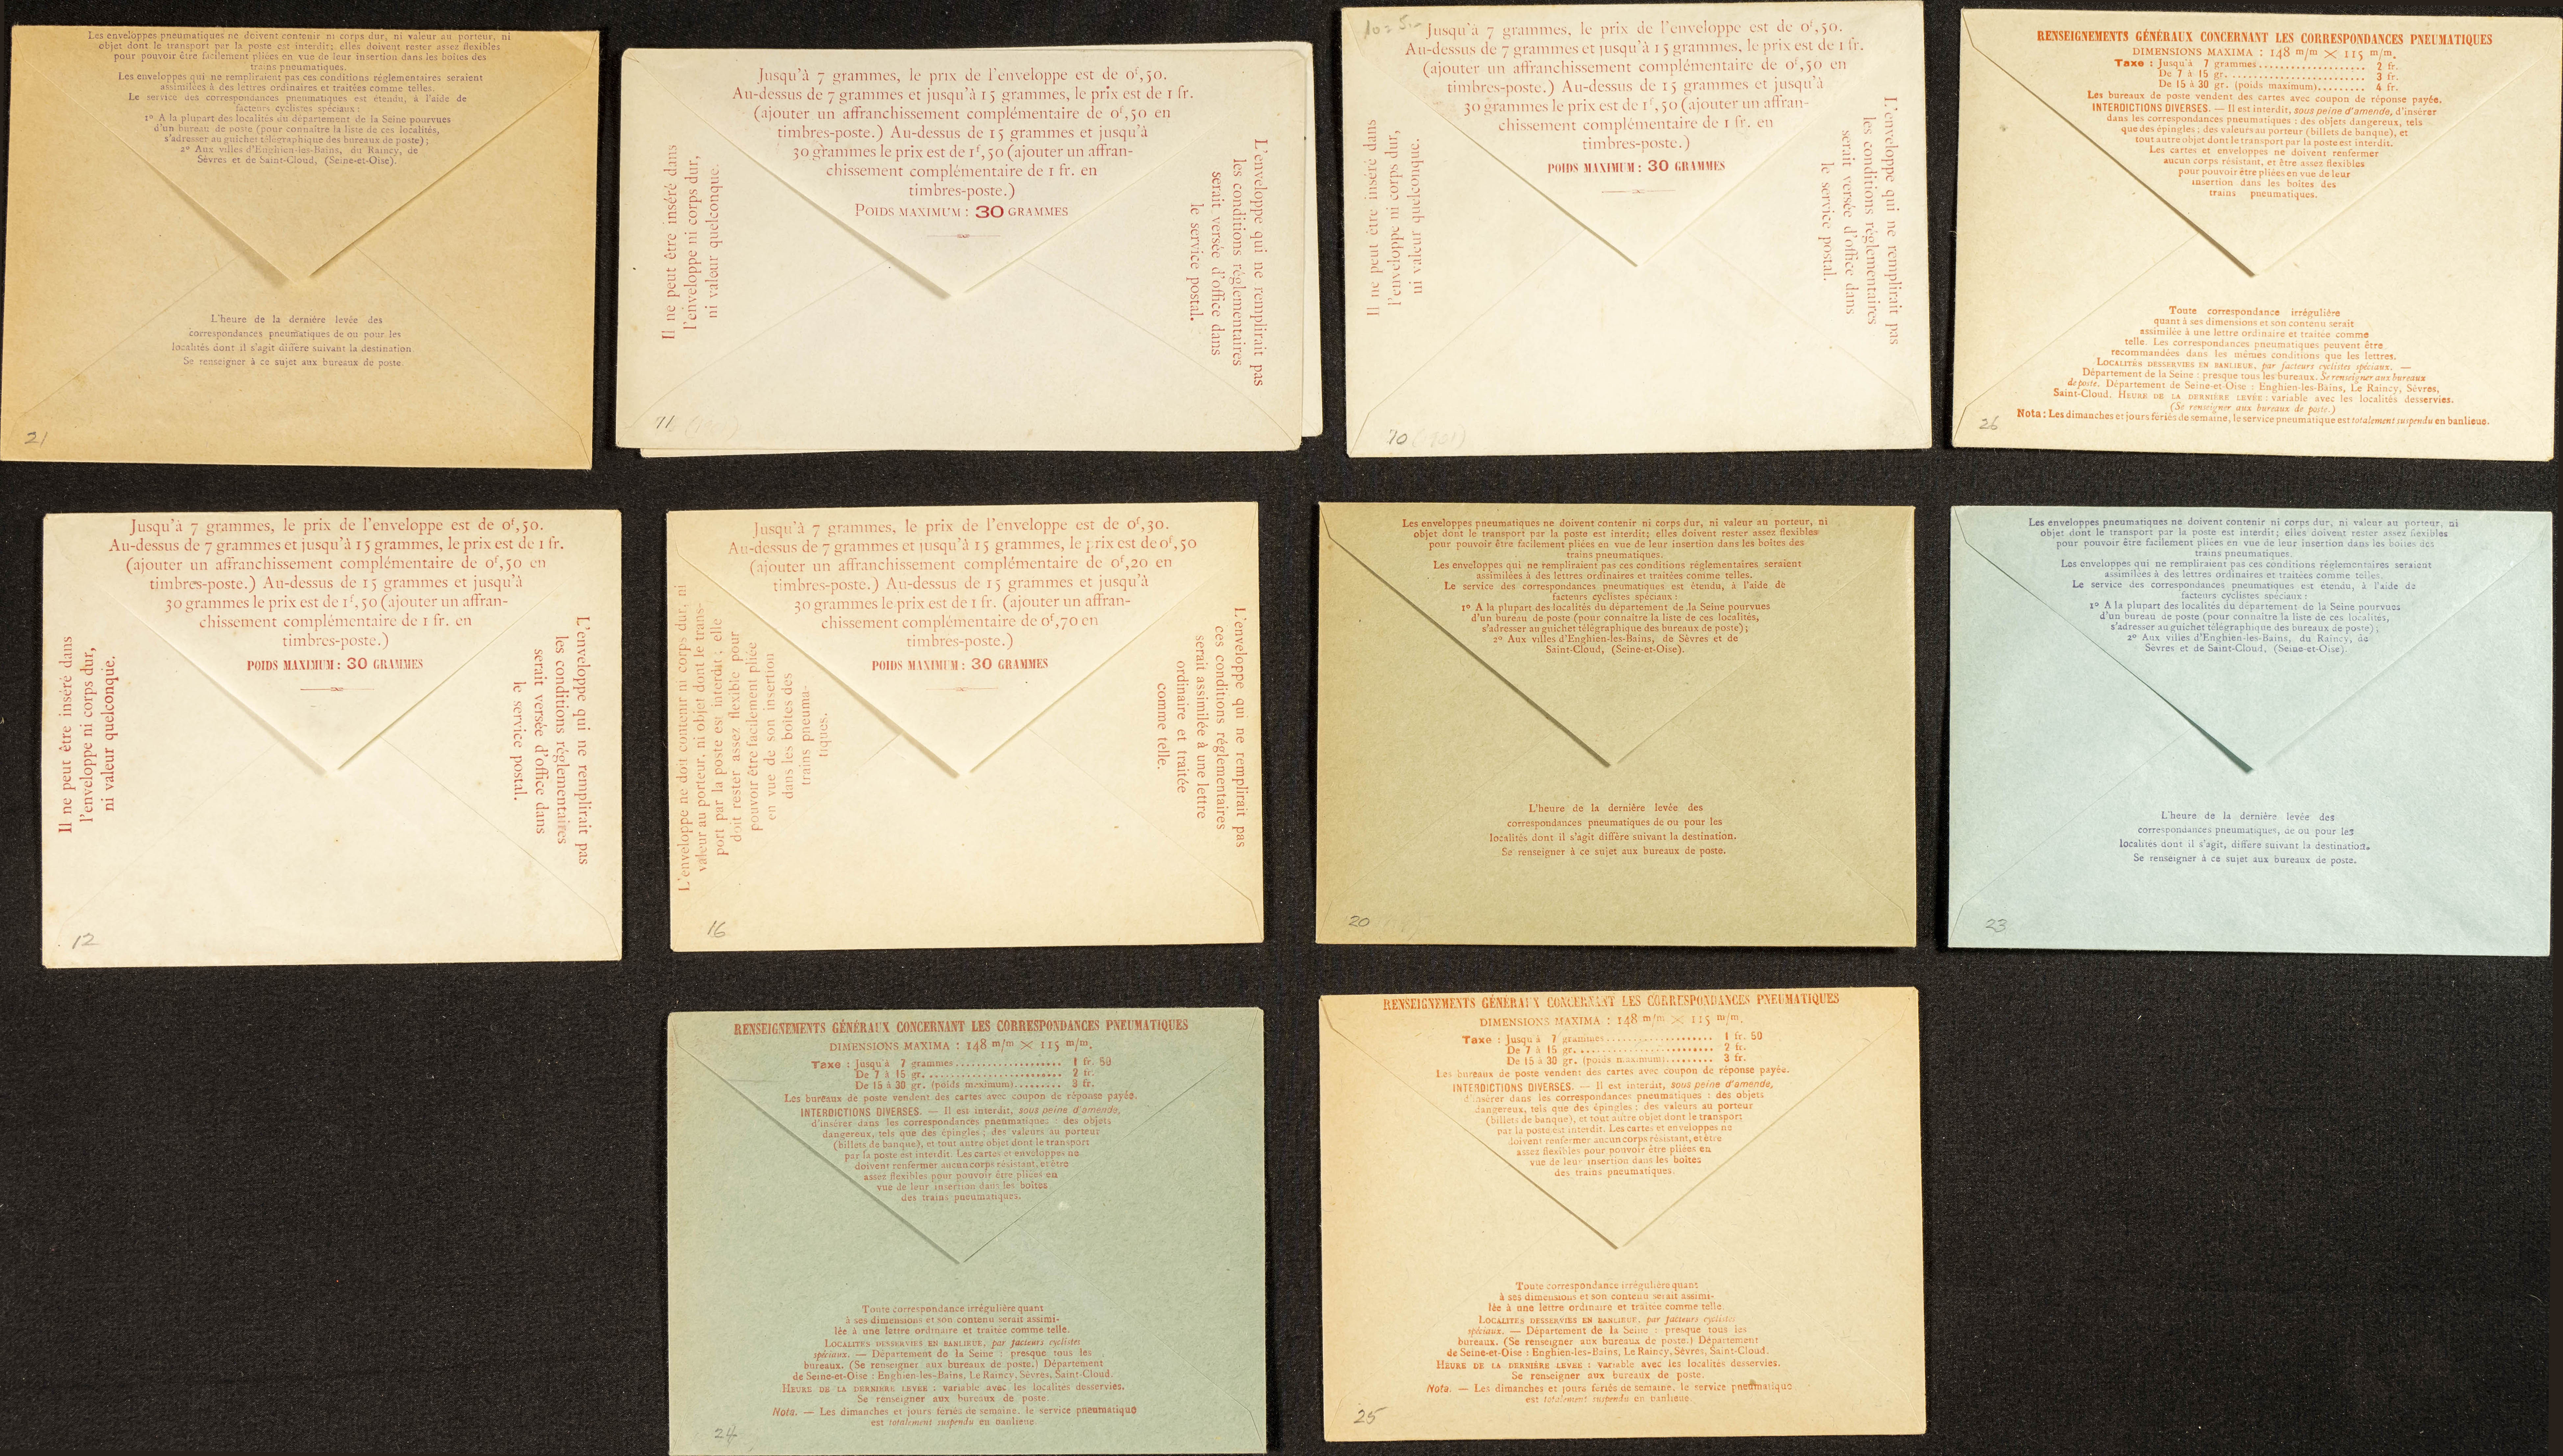 Les enveloppes pneumatiques ne doivent contenir ni corps dur, ni valeur au porteur, ni
objet dont le transport par la poste est interdit; elles doivent rester assez flexibles
pour pouvoir être facilement pliées en vue de leur insertion dans les boîtes des
trains pneumatiques.
Les enveloppes qui ne rempliraient pas ces conditions réglementaires seraient
assimilées à des lettres ordinaires et traitées comme telles.
Le service des correspondances pneumatiques est étendu, à l'aide de
facteurs cyclistes spéciaux :
1º A la plupart des localités du département de la Seine pourvues
d'un bureau de poste (pour connaître la liste de ces localités,
s'adresser au guichet télégraphique des bureaux de poste);
2º Aux villes d'Enghien-les-Bains, du Raincy, de
Sèvres et de Saint-Cloud, (Seine-et-Oise).
L'heure de la dernière levée des
correspondances pneumatiques de ou pour les
localités dont il s'agit diffère suivant la destination
Se renseigner à ce sujet aux bureaux de poste.
21
Jusqu'à 7 grammes, le prix de l'enveloppe est de 0f,50.
Au-dessus de 7 grammes et jusqu'à 15 grammes, le prix est de 1 fr.
(ajouter un affranchissement complémentaire de 0f,50 en
timbres-poste.) Au-dessus de 15 grammes et jusqu'à
30 grammes le prix est de 1f,50 (ajouter un affran-
chissement complémentaire de 1 fr. en
timbres-poste.)
POIDS MAXIMUM : 30 GRAMMES
Il ne peut être inséré dans
l'enveloppe ni corps dur,
ni valeur quelconque.
L'enveloppe qui ne remplirait pas
les conditions réglementaires
serait versée d'office dans
le service postal.
71
10 = 5.-
Jusqu'à 7 grammes, le prix de l'enveloppe est de 0f,50.
Au-dessus de 7 grammes et jusqu'à 15 grammes, le prix est de 1 fr.
(ajouter un affranchissement complémentaire de 0f,50 en
timbres-poste.) Au-dessus de 15 grammes et jusqu'à
30 grammes le prix est de 1f,50 (ajouter un affran-
chissement complémentaire de 1 fr. en
timbres-poste.)
POIDS MAXIMUM : 30 GRAMMES
Il ne peut être inséré dans
l'enveloppe ni corps dur,
ni valeur quelconque.
L'enveloppe qui ne remplirait pas
les conditions réglementaires
serait versée d'office dans
le service postal.
70
RENSEIGNEMENTS GÉNÉRAUX CONCERNANT LES CORRESPONDANCES PNEUMATIQUES
DIMENSIONS MAXIMA : 148 m/m × 115 m/m.
Taxe : Jusqu'à 7 grammes.................... 2 fr.
De 7 à 15 gr. ......................... 3 fr.
De 15 à 30 gr. (poids maximum)......... 4 fr.
Les bureaux de poste vendent des cartes avec coupon de réponse payée.
INTERDICTIONS DIVERSES. — Il est interdit, sous peine d'amende, d'insérer
dans les correspondances pneumatiques : des objets dangereux, tels
que des épingles; des valeurs au porteur (billets de banque), et
tout autre objet dont le transport par la poste est interdit.
Les cartes et enveloppes ne doivent renfermer
aucun corps résistant, et être assez flexibles
pour pouvoir être pliées en vue de leur
insertion dans les boîtes des
trains pneumatiques.
Toute correspondance irrégulière
quant à ses dimensions et son contenu serait
assimilée à une lettre ordinaire et traitée comme
telle. Les correspondances pneumatiques peuvent être
recommandées dans les mêmes conditions que les lettres.
LOCALITÉS DESSERVIES EN BANLIEUE, par facteurs cyclistes spéciaux. —
Département de la Seine : presque tous les bureaux. Se renseigner aux bureaux
de poste. Département de Seine-et-Oise : Enghien-les-Bains, Le Raincy, Sèvres,
Saint-Cloud. HEURE DE LA DERNIÈRE LEVÉE : variable avec les localités desservies.
(Se renseigner aux bureaux de poste.)
Nota : Les dimanches et jours fériés de semaine, le service pneumatique est totalement suspendu en banlieue.
26
Jusqu'à 7 grammes, le prix de l'enveloppe est de 0f,50.
Au-dessus de 7 grammes et jusqu'à 15 grammes, le prix est de 1 fr.
(ajouter un affranchissement complémentaire de 0f,50 en
timbres-poste.) Au-dessus de 15 grammes et jusqu'à
30 grammes le prix est de 1f,50 (ajouter un affran-
chissement complémentaire de 1 fr. en
timbres-poste.)
POIDS MAXIMUM : 30 GRAMMES
Il ne peut être inséré dans
l'enveloppe ni corps dur,
ni valeur quelconque.
L'enveloppe qui ne remplirait pas
les conditions réglementaires
serait versée d'office dans
le service postal.
12
Jusqu'à 7 grammes, le prix de l'enveloppe est de 0f,30.
Au-dessus de 7 grammes et jusqu'à 15 grammes, le prix est de 0f,50
(ajouter un affranchissement complémentaire de 0f,20 en
timbres-poste.) Au-dessus de 15 grammes et jusqu'à
30 grammes le prix est de 1 fr. (ajouter un affran-
chissement complémentaire de 0f,70 en
timbres-poste.)
POIDS MAXIMUM : 30 GRAMMES
L'enveloppe ne doit contenir ni corps dur, ni
valeur au porteur, ni objet dont le trans-
port par la poste est interdit; elle
doit rester assez flexible pour
pouvoir être facilement pliée
en vue de son insertion
dans les boîtes des
trains pneuma-
tiques.
L'enveloppe qui ne remplirait pas
ces conditions réglementaires
serait assimilée à une lettre
ordinaire et traitée
comme telle.
16
Les enveloppes pneumatiques ne doivent contenir ni corps dur, ni valeur au porteur, ni
objet dont le transport par la poste est interdit; elles doivent rester assez flexibles
pour pouvoir être facilement pliées en vue de leur insertion dans les boîtes des
trains pneumatiques.
Les enveloppes qui ne rempliraient pas ces conditions réglementaires seraient
assimilées à des lettres ordinaires et traitées comme telles.
Le service des correspondances pneumatiques est étendu, à l'aide de
facteurs cyclistes spéciaux :
1º A la plupart des localités du département de la Seine pourvues
d'un bureau de poste (pour connaître la liste de ces localités,
s'adresser au guichet télégraphique des bureaux de poste);
2º Aux villes d'Enghien-les-Bains, de Sèvres et de
Saint-Cloud, (Seine-et-Oise).
L'heure de la dernière levée des
correspondances pneumatiques de ou pour les
localités dont il s'agit diffère suivant la destination.
Se renseigner à ce sujet aux bureaux de poste.
20
Les enveloppes pneumatiques ne doivent contenir ni corps dur, ni valeur au porteur, ni
objet dont le transport par la poste est interdit; elles doivent rester assez flexibles
pour pouvoir être facilement pliées en vue de leur insertion dans les boîtes des
trains pneumatiques.
Les enveloppes qui ne rempliraient pas ces conditions réglementaires seraient
assimilées à des lettres ordinaires et traitées comme telles.
Le service des correspondances pneumatiques est étendu, à l'aide de
facteurs cyclistes spéciaux :
1º A la plupart des localités du département de la Seine pourvues
d'un bureau de poste (pour connaître la liste de ces localités,
s'adresser au guichet télégraphique des bureaux de poste);
2º Aux villes d'Enghien-les-Bains, du Raincy, de
Sèvres et de Saint-Cloud, (Seine-et-Oise).
L'heure de la dernière levée des
correspondances pneumatiques, de ou pour les
localités dont il s'agit, diffère suivant la destination.
Se renseigner à ce sujet aux bureaux de poste.
23
RENSEIGNEMENTS GÉNÉRAUX CONCERNANT LES CORRESPONDANCES PNEUMATIQUES
DIMENSIONS MAXIMA : 148 m/m × 115 m/m.
Taxe : Jusqu'à 7 grammes.................... 1 fr. 50
De 7 à 15 gr. ......................... 2 fr.
De 15 à 30 gr. (poids maximum)......... 3 fr.
Les bureaux de poste vendent des cartes avec coupon de réponse payée.
INTERDICTIONS DIVERSES. — Il est interdit, sous peine d'amende,
d'insérer dans les correspondances pneumatiques : des objets
dangereux, tels que des épingles; des valeurs au porteur
(billets de banque), et tout autre objet dont le transport
par la poste est interdit. Les cartes et enveloppes ne
doivent renfermer aucun corps résistant, et être
assez flexibles pour pouvoir être pliées en
vue de leur insertion dans les boîtes
des trains pneumatiques.
Toute correspondance irrégulière quant
à ses dimensions et son contenu serait assimi-
lée à une lettre ordinaire et traitée comme telle.
LOCALITÉS DESSERVIES EN BANLIEUE, par facteurs cyclistes
spéciaux. — Département de la Seine : presque tous les
bureaux. (Se renseigner aux bureaux de poste.) Département
de Seine-et-Oise : Enghien-les-Bains, Le Raincy, Sèvres, Saint-Cloud.
HEURE DE LA DERNIÈRE LEVÉE : variable avec les localités desservies.
Se renseigner aux bureaux de poste.
Nota. — Les dimanches et jours fériés de semaine, le service pneumatique
est totalement suspendu en banlieue.
24
RENSEIGNEMENTS GÉNÉRAUX CONCERNANT LES CORRESPONDANCES PNEUMATIQUES
DIMENSIONS MAXIMA : 148 m/m × 115 m/m.
Taxe : Jusqu'à 7 grammes.................... 1 fr. 50
De 7 à 15 gr. ......................... 2 fr.
De 15 à 30 gr. (poids maximum)......... 3 fr.
Les bureaux de poste vendent des cartes avec coupon de réponse payée.
INTERDICTIONS DIVERSES. — Il est interdit, sous peine d'amende,
d'insérer dans les correspondances pneumatiques : des objets
dangereux, tels que des épingles; des valeurs au porteur
(billets de banque), et tout autre objet dont le transport
par la poste est interdit. Les cartes et enveloppes ne
doivent renfermer aucun corps résistant, et être
assez flexibles pour pouvoir être pliées en
vue de leur insertion dans les boîtes
des trains pneumatiques.
Toute correspondance irrégulière quant
à ses dimensions et son contenu serait assimi-
lée à une lettre ordinaire et traitée comme telle.
LOCALITÉS DESSERVIES EN BANLIEUE, par facteurs cyclistes
spéciaux. — Département de la Seine : presque tous les
bureaux. (Se renseigner aux bureaux de poste.) Département
de Seine-et-Oise : Enghien-les-Bains, Le Raincy, Sèvres, Saint-Cloud.
HEURE DE LA DERNIÈRE LEVÉE : variable avec les localités desservies.
Se renseigner aux bureaux de poste.
Nota. — Les dimanches et jours fériés de semaine, le service pneumatique
est totalement suspendu en banlieue.
25